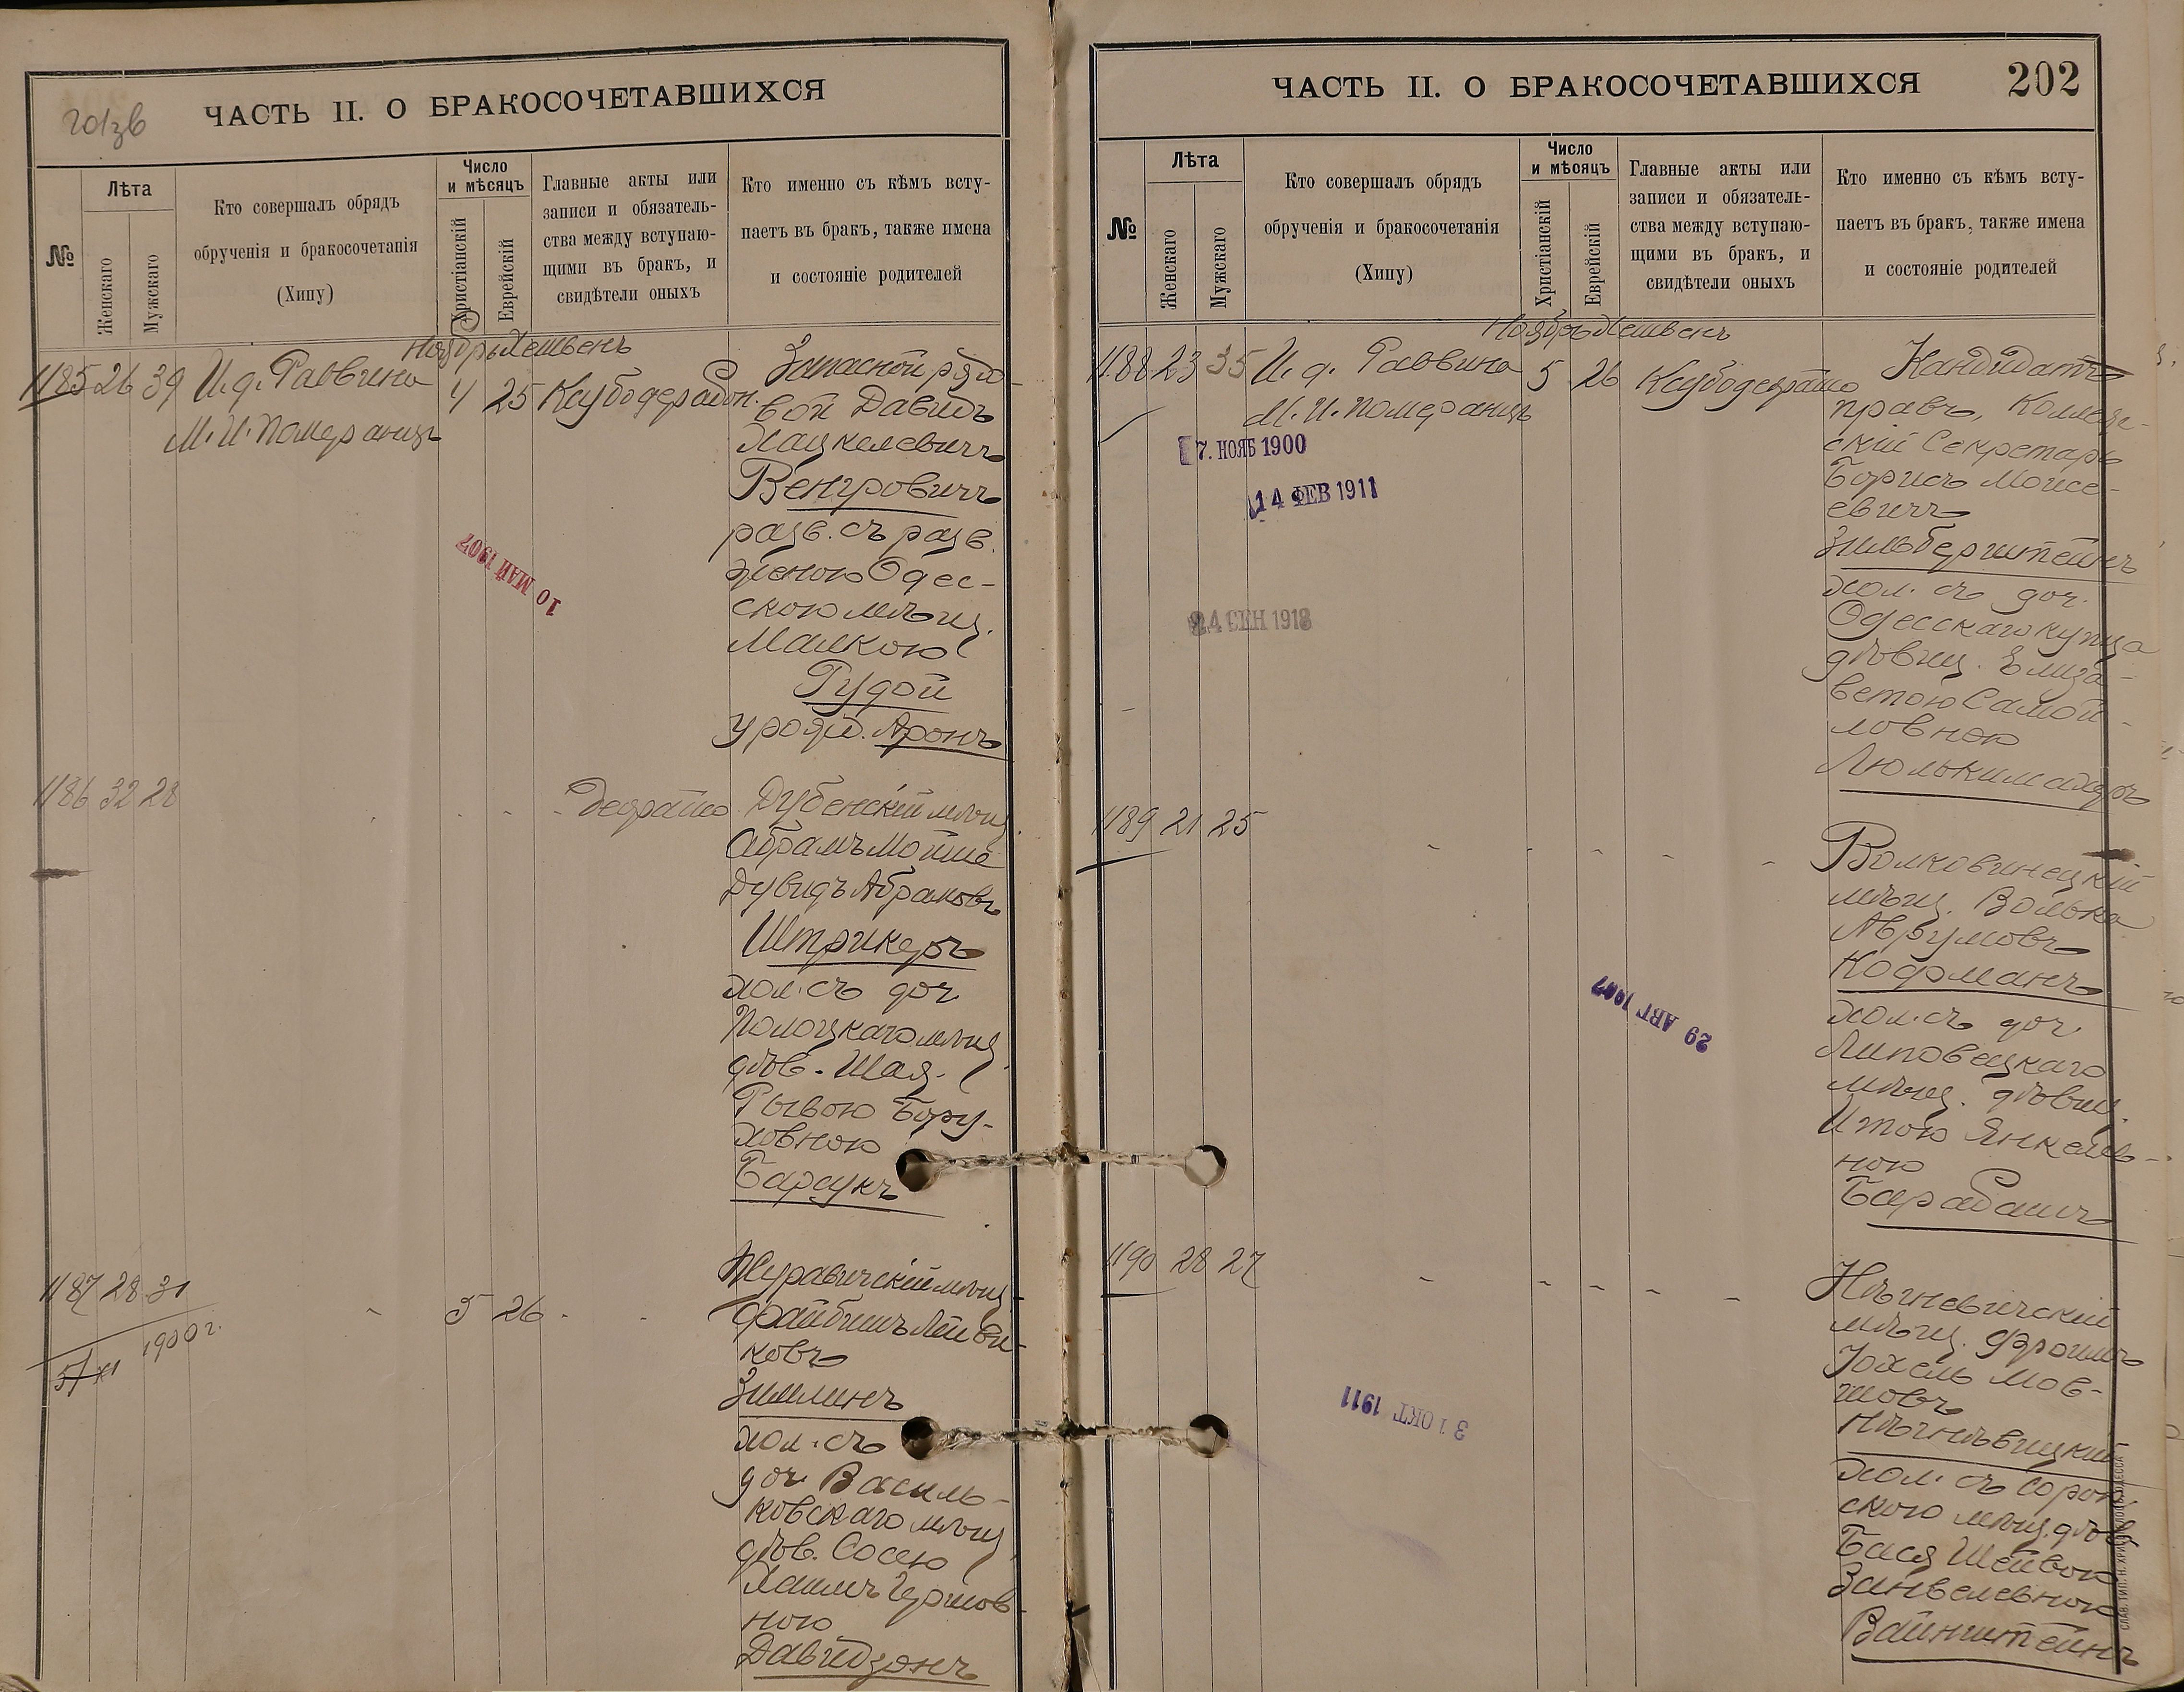 201зв
ЧАСТЬ II. О БРАКОСОЧЕТАВШИХСЯ
№
Лѣта
Женскаго
Мужскаго
Кто совершалъ обрядъ
обрученія и бракосочетанія
(Хипу)
Число
и мѣсяцъ
Христіанскій
Еврейскій
Главные акты или
записи и обязатель-
ства между вступаю-
щими въ бракъ, и
свидѣтели оныхъ
Кто именно съ кѣмъ всту-
паетъ въ бракъ, также имена
и состояніе родителей
Ноябрь Хешвенъ
1185 26 39 И.д. Раввина 4 25
М.И. Померанцъ
Запасной рядо-
вой Давидъ
Хацкелевичъ
Венгровичъ
разв. съ разв.
женою Одес-
скою мѣщ.
Малкою
Рудой
урожд. Аронъ
10 МАЙ 1907
1186 32 28
Дубенскій мѣщ.
Абрамъ Мойше
Дувидъ Абрамовъ
Штрикеръ
хол. съ доч.
Полоцкаго мѣщ.
дѣв. Шая-
Рывою Бору-
ховною
Барсукъ
1187 28 31 5 26
5/XI 1900 г.
Журавичскій мѣщ.
Файбишъ Лейви-
ковъ
Зимлинъ
хол. съ
доч. Василь-
ковскаго мѣщ.
дѣв. Сосею
Гершов-
ною
Давидзонъ
ЧАСТЬ II. О БРАКОСОЧЕТАВШИХСЯ
202
№
Лѣта
Женскаго
Мужскаго
Кто совершалъ обрядъ
обрученія и бракосочетанія
(Хипу)
Число
и мѣсяцъ
Христіанскій
Еврейскій
Главные акты или
записи и обязатель-
ства между вступаю-
щими въ бракъ, и
свидѣтели оныхъ
Кто именно съ кѣмъ всту-
паетъ въ бракъ, также имена
и состояніе родителей
Ноябрь Хешвенъ
1188 23 35 И.д. Раввина 5 26
М.И. Померанцъ
7. НОЯБ 1900
14 ФЕВ 1911
24 СЕН 1918
Кандидатъ
правъ, Коллеж-
скій Секретарь
Борисъ Моисе-
евичъ
Зильберштейнъ
хол. съ доч.
Одесскаго купца
дѣвиц. Елиза-
ветою Самой-
ловною
Люлькимахеръ
1189 21 25
Волковинецкій
мѣщ. Волька
Аврумовъ
Кофманъ
хол. съ доч.
Липовецкаго
мѣщ. дѣвиц.
Итою Янкелев-
ною
Барабашъ
29 АВГ 1907
1190 28 27
мѣщ. Фроимъ
Іохель Мов-
шовъ
хол. съ Сорок-
скою мѣщ. дѣв.
Бася Шейвою
Занвелевною
Вайнштейнъ
31 ОКТ 1911